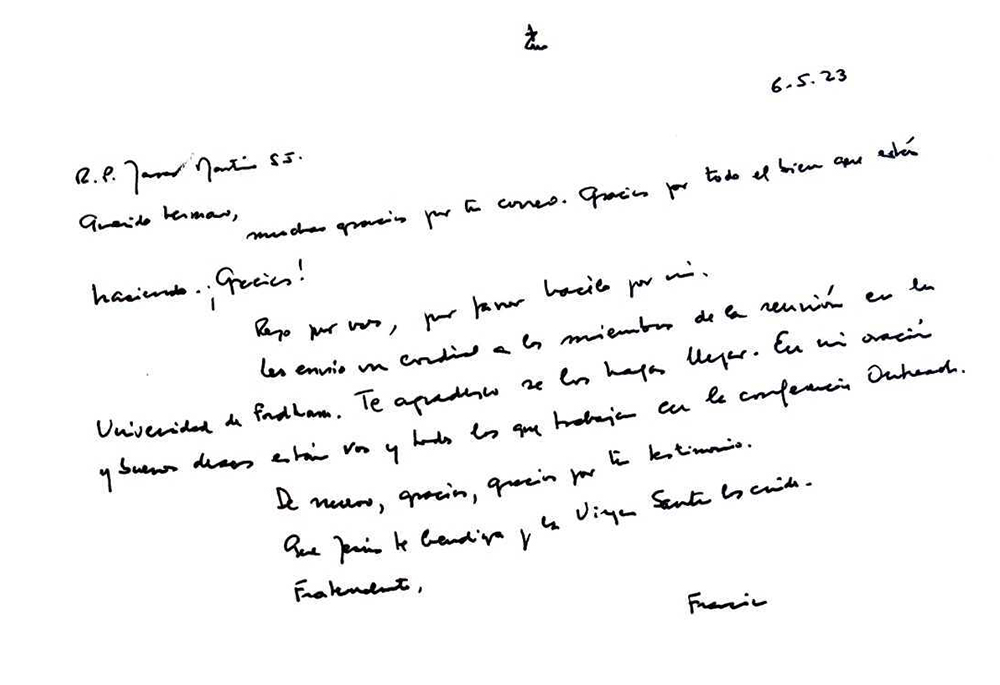 6.5.23
R.P. James Martin S.J.
Querido hermano,
muchas gracias por tu correo. Gracias por todo el bien que estás
haciendo. ¡Gracias!
Rezo por vos, por favor hacelo por mi.
Les envío un cordial a los miembros de la reunión en la
Universidad de Fordham. Te agradesco se los hagas llegar. En mi oración
y buenos deseos están vos y todos los que trabajan en la conferencia Outreach.
De nuevo, gracias, gracias por tu testimonio.
Que Jesús te bendiga y la Virgen Santa los cuide.
Fraternalmente,
Francisco